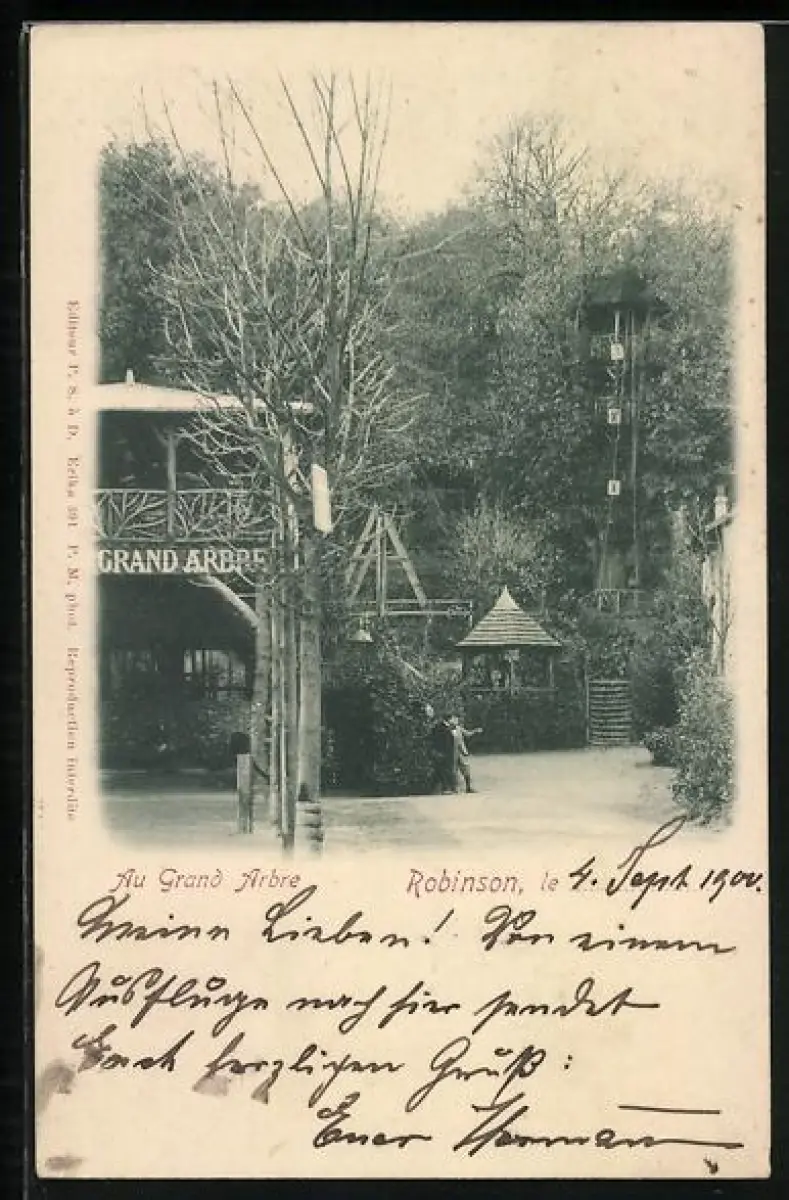 GRAND ARBRE
Editeur P. S. à D. Erika 391 P. M. phot. Reproduction interdite
Au Grand Arbre Robinson, le 4. Sept 1900.
Meine Lieben! Von einem
Ausfluge nach hier sendet
Euch herzligen Gruß:
Euer Hermann